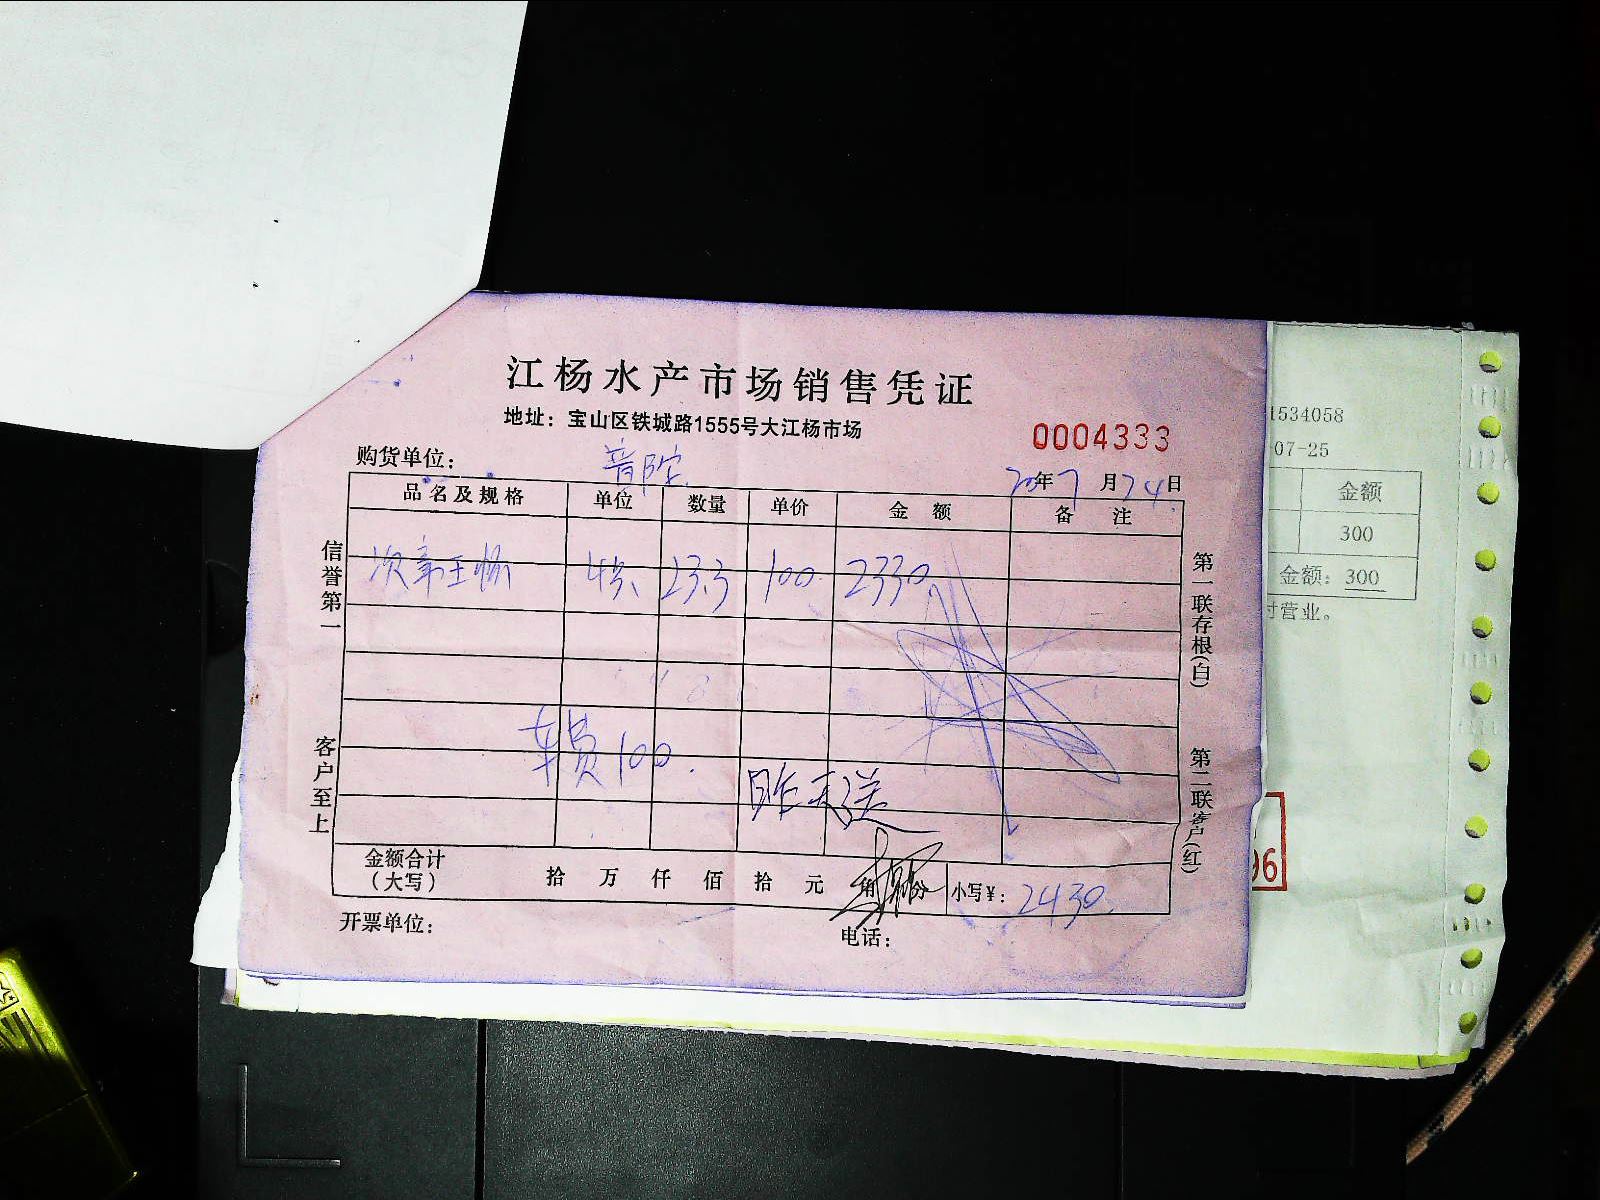 江杨水产市场销售凭证
地址：宝山区铁城路1555号大江杨市场
0004333
购货单位：普陀
20年7月24日
品名及规格 单位 数量 单价 金额 备注
23.3 100 2330
车费100.
昨天送
金额合计（大写） 拾 万 仟 佰 拾 元 角 分 小写¥：2430.
开票单位：
电话：
信誉第一
客户至上
第一联存根（白）
第二联客户（红）
1534058
07-25
金额
300
金额：300
付营业。
96